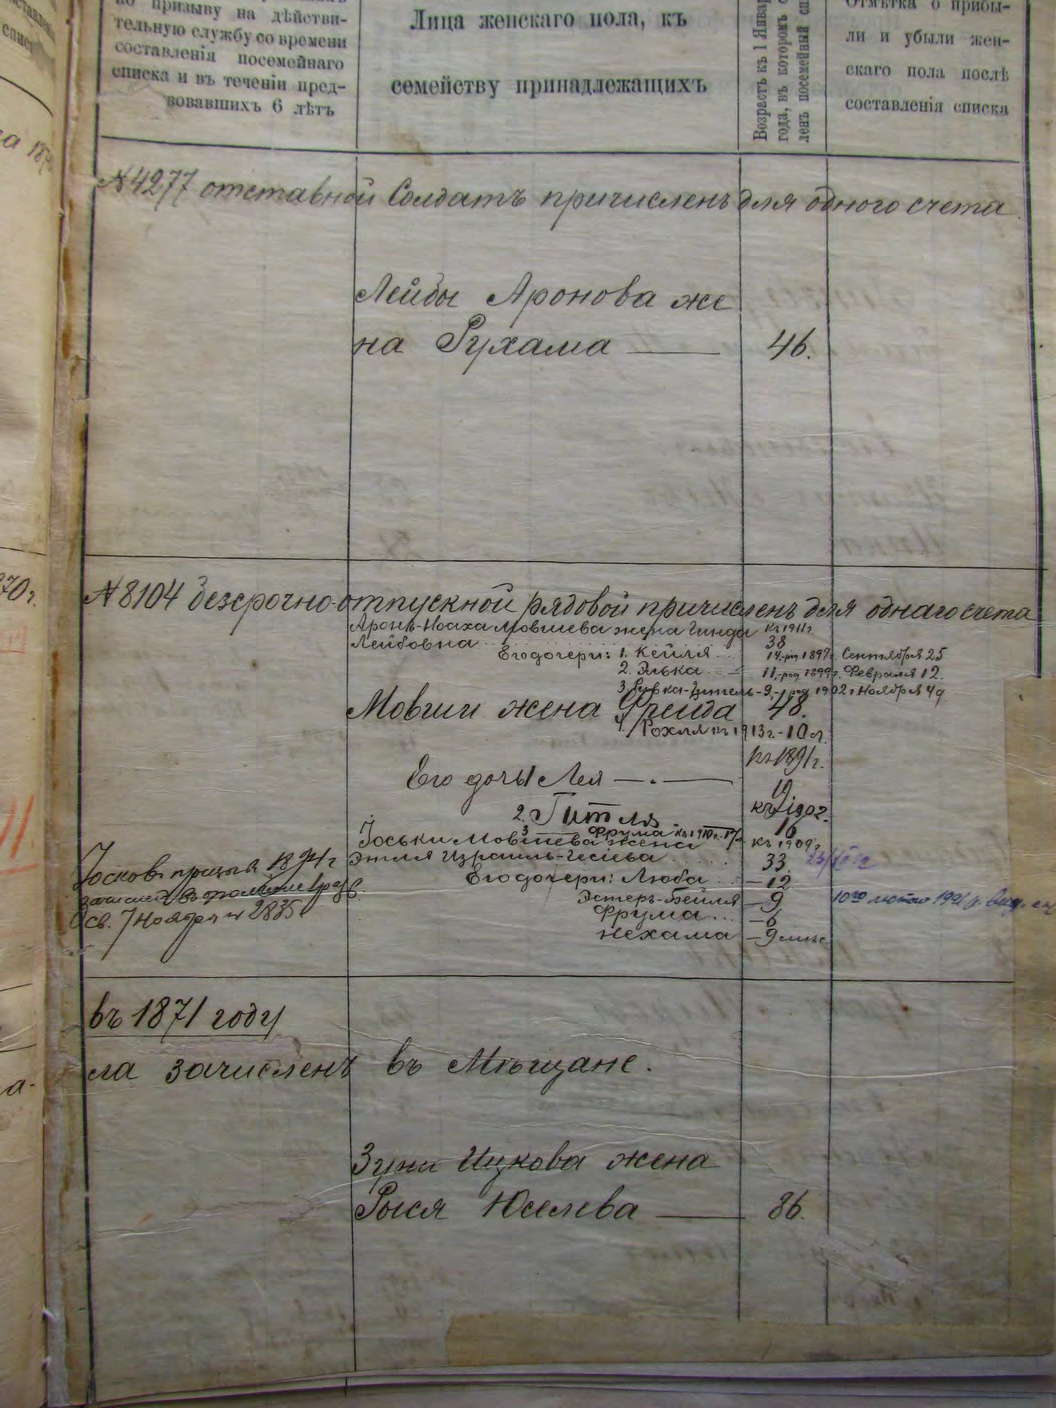 по призыву на дѣйстви-
тельную службу со времени
составленія посемейнаго
списка и въ теченіи пред-
вовавшихъ 6 лѣтъ
Лица женскаго пола, къ
семейству принадлежащихъ
Возрастъ къ 1 Январ
года, въ которомъ с
ленъ посемейный сп
Отмѣтка о прибы-
ли и убыли жен-
скаго пола послѣ
составленія списка
№4277 отставной Солдатъ причисленъ для одного счета
Лейбы Аронова же
на Рухама — 46.
№8104 безсрочно-отпускной рядовой причисленъ для однаго счета
Аронъ-Ноаха Мовшева жена Гинда къ 1911г.
Лейбовна 38
Его дочери: 1. Кейля 14, род 1897г. Сентября 25
2. Элька 11, род 1899г. Февраля 12.
3 -Цитель-9, род 1902г Ноября
Мовши жена Фрейда 48.
4. Рохля къ 1913г-10л.
къ 1891г.
Его дочь 1 Лея — 19
къ 1902.
2. Гитля 16
3 Фрума къ 1910г.
Іоськи Мовшева жена къ 1909г.
Этля Израиль-Гесы 33
Его дочери: Люба —12
Эстеръ-Бейля —9
Фрума... —6
Нехама —9 мѣс.
Іосковъ призыва 1894г
Осв. 7 Ноября № 2835
10го 1921
въ 1871 году
ла зачисленъ въ Мѣщане.
Зуни Ицкова жена
Рыся Юселева — 86.